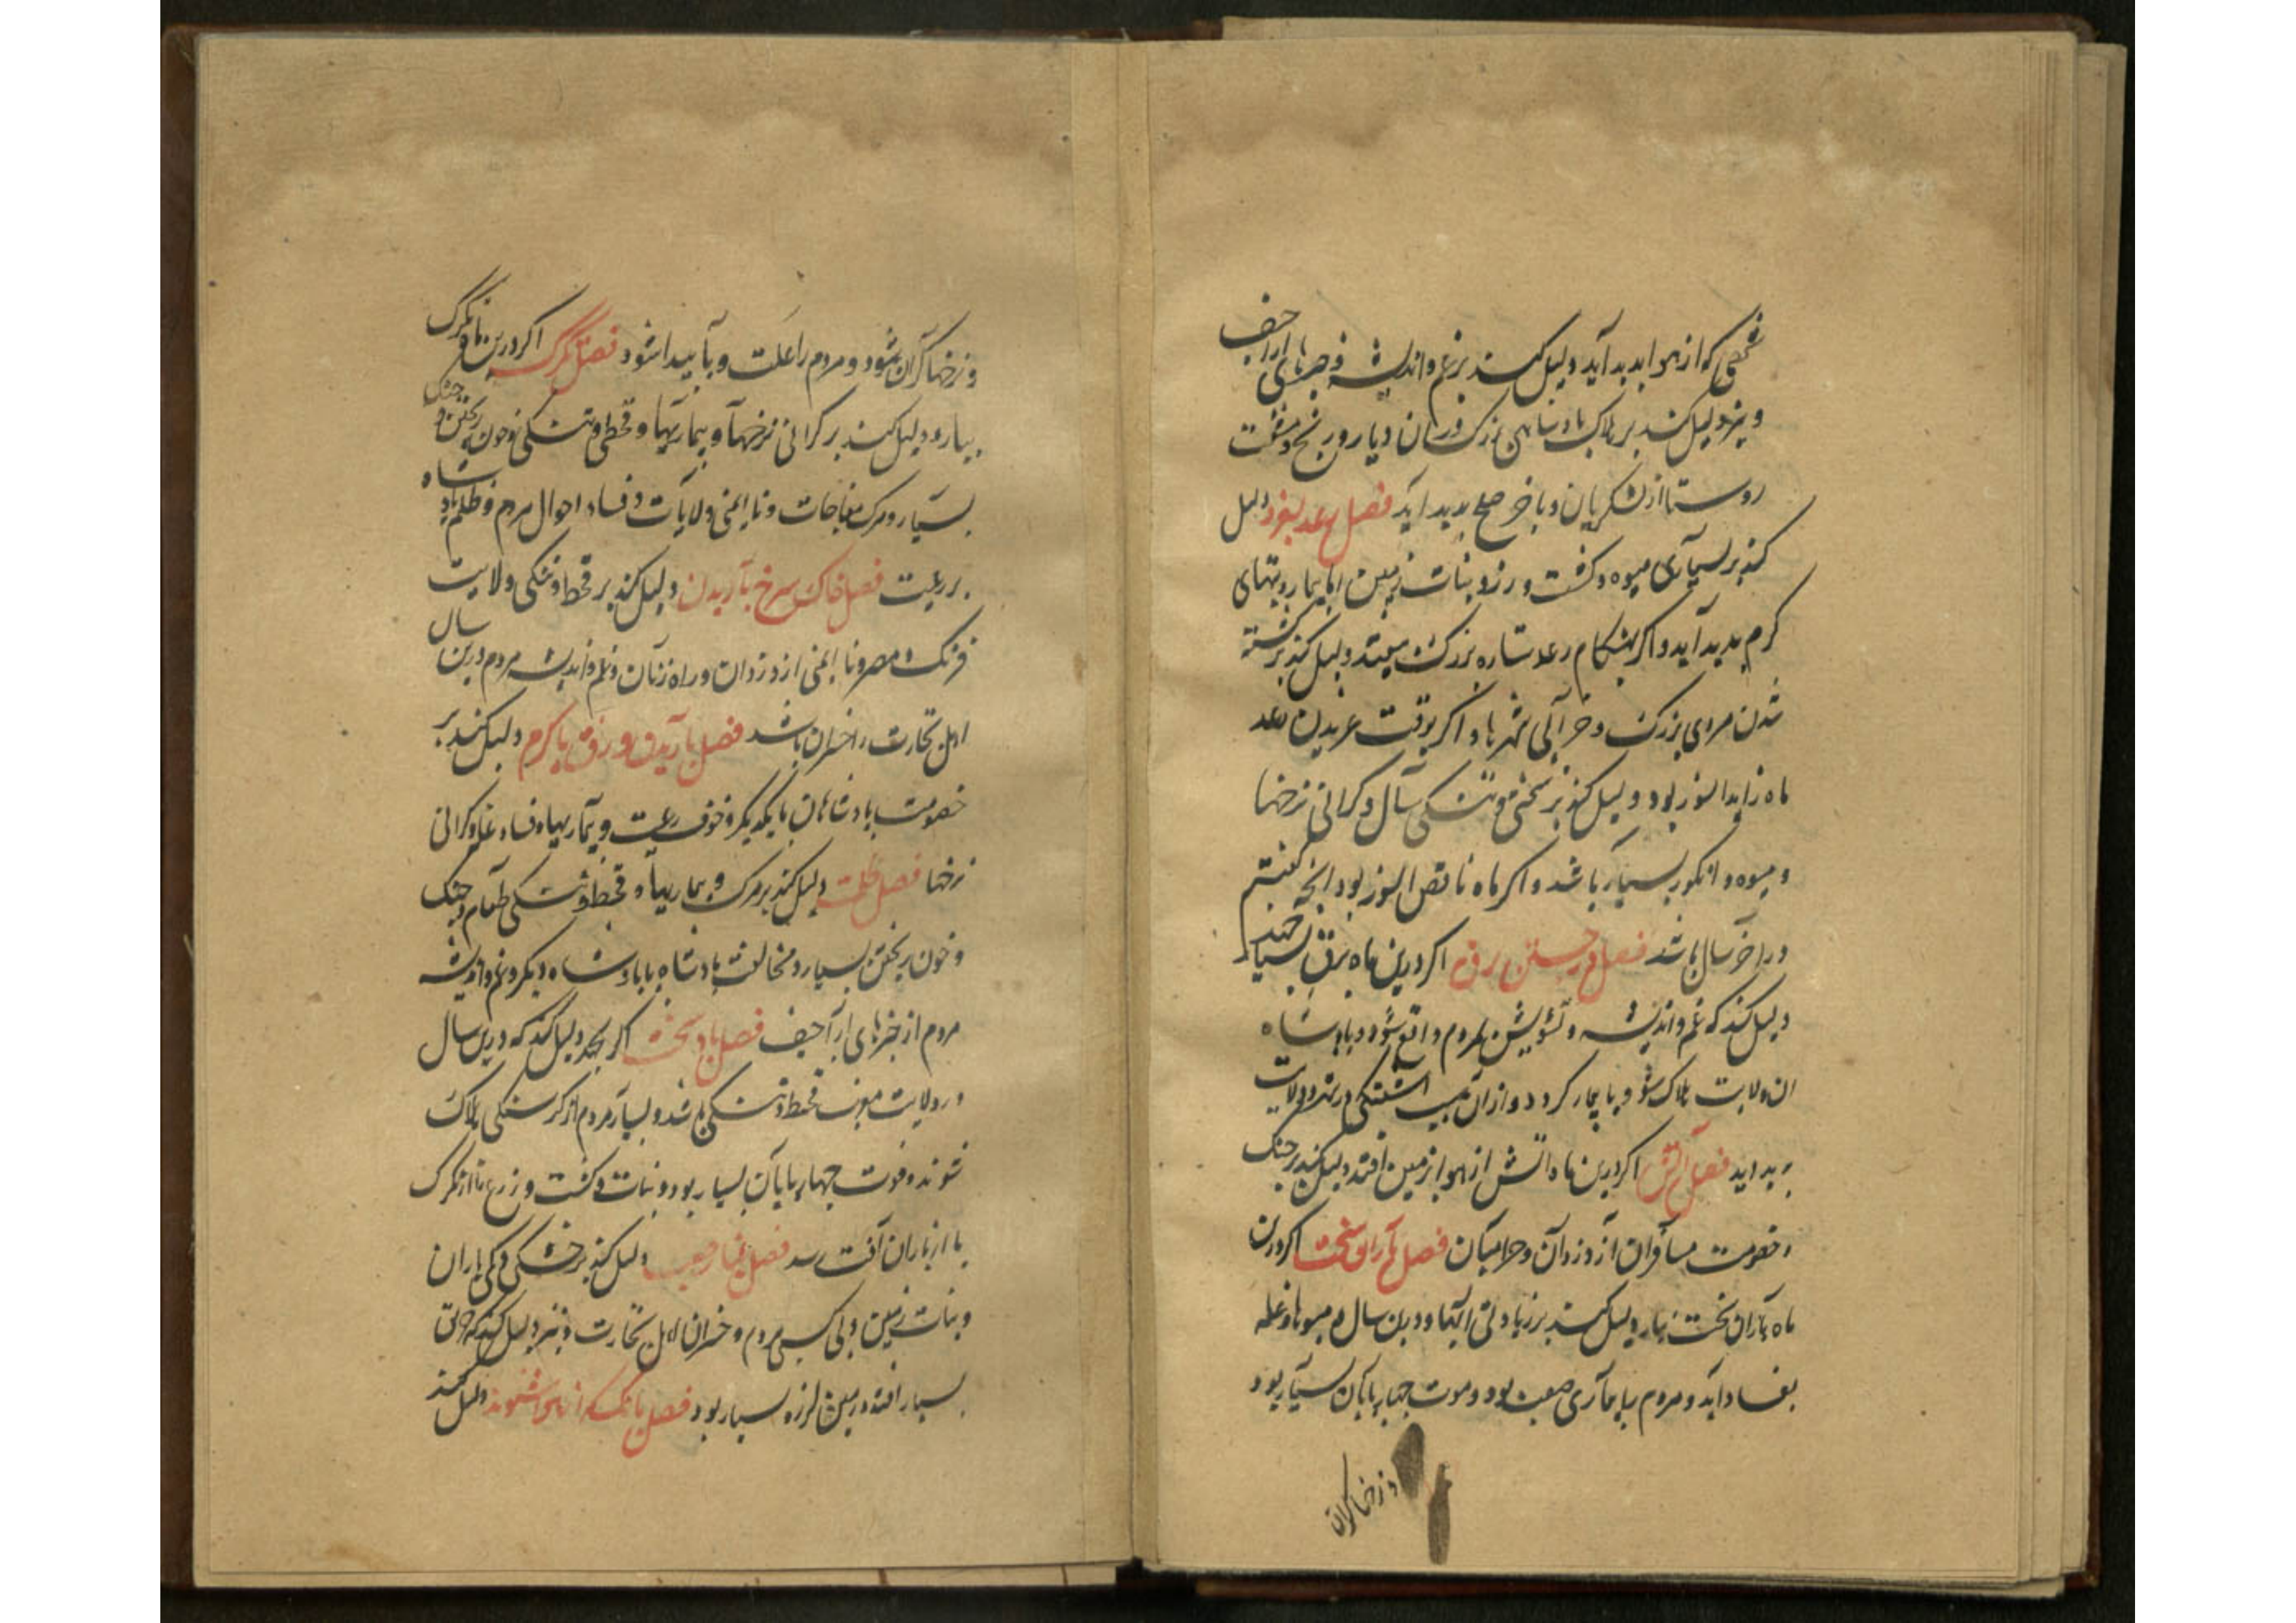 شخصی که از هوا بدید آید دلیل کند بر غم و اندیشه و خبرهای اراجیف
و نیز دلیل کند بر هلاک پادشاهی بزرگ در ان دیار و رنج و مشقت
روستا از لشکریان و باخر صلح بدید اید فصل رعد بغرد دلیل
کند بر بسیاری میوه و کشت و رز و نبات زمین اما بیماریهای
کرم بدید آید و اکر بهنکام رعد ستاره بزرک بیفتد دلیل کند بر کشته
شدن مردی بزرک و خرابی شهرها و اکر بوقت غریدن رعد
ماه زاید النور بود دلیل کند بر سختی و تنکی سال و کرانی نرخها
و میوه و انکور بسیار باشد و اکر ماه ناقص النور بود انچه کفتیم
در اخر سال باشد فصل در جستن برق اکر درین ماه برق بسیار جهد
دلیل کند که غم و اندیشه و تشویش بمردم واقع شود و پادشاه
ان ولایت هلاک شود و یا بیمار کردد و ازان سبب اشفتکی در شهر و ولایت
بدید اید فصل آتش اکر درین ماه اتش از هوا بزمین افتد دلیل کند بر جنک
و خصومت مسافران از دزدان و حرامیان فصل باران سخت اکر درین
ماه باران سخت ببارد دلیل کند بر زیادتی ابها و درین سال میوها و غله
بفساد آید و مردم را بیماری صعب بود و موت چهارپایان بسیار بود
و نرخها کران
و نرخها کران شود و مردم را علت وبا پیدا شود فصل تکرک اکر درین ماه تکرک
ببارد دلیل کند بر کرانی نرخها و بیماریها و قحطی و تنکی و خون ریختن و جنک
بسیار و مرک مفاجات و ناایمنی ولایات و فساد احوال مردم و ظلم پادشاه
بر رعیت فصل خاک سرخ باریدن دلیل کند بر قحط و تنکی ولایت
فرنک و مصر و ناایمنی از دزدان و راه زنان و غم و اندیشه مردم و درین سال
اهل تجارت را خسران باشد فصل باریدن وزق یا کرم دلیل کند بر
خصومت پادشاهان با یکدیکر و خوف رعیت و بیماریها و فساد غله و کرانی
نرخها فصل ظلمت دلیل کند بر مرک و بیماریها و قحط و تنکی طعام و جنک
و خون ریختن بسیار و مخالفت پادشاه با پادشاه دیکر و غم و اندیشه
مردم از خبرهای اراجیف فصل باد سخت اکر بجهد دلیل کند که درین سال
در ولایت قحط و تنکی باشد و بسیار مردم از کرسنکی هلاک
شوند و فوت چهارپایان بسیار بود و نبات و کشت و زرع را از تکرک
یا از باران آفت رسد فصل غبار دلیل کند بر خشکی و کمی باران
و نبات زمین و بی کسبی مردم و خسران اهل تجارت و نیز دلیل کند که
بسیار افتد و زمین لرزه بسیار بود فصل بانک که از شنوند دلیل کند